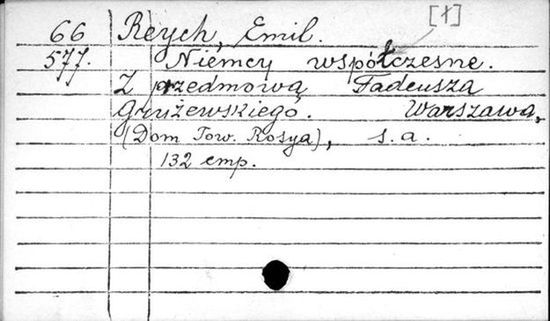 [ł]
66 Reych, Emil.
577. Niemcy współczesne.
Z przedmową Tadeusza
Grużewskiego. Warszawa,
(Dom Tow. Rosya), s.a.
132 стр.